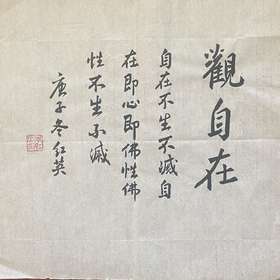 觀自在
自在不生不滅自
在即心即佛性佛
性不生不滅
庚子冬红英